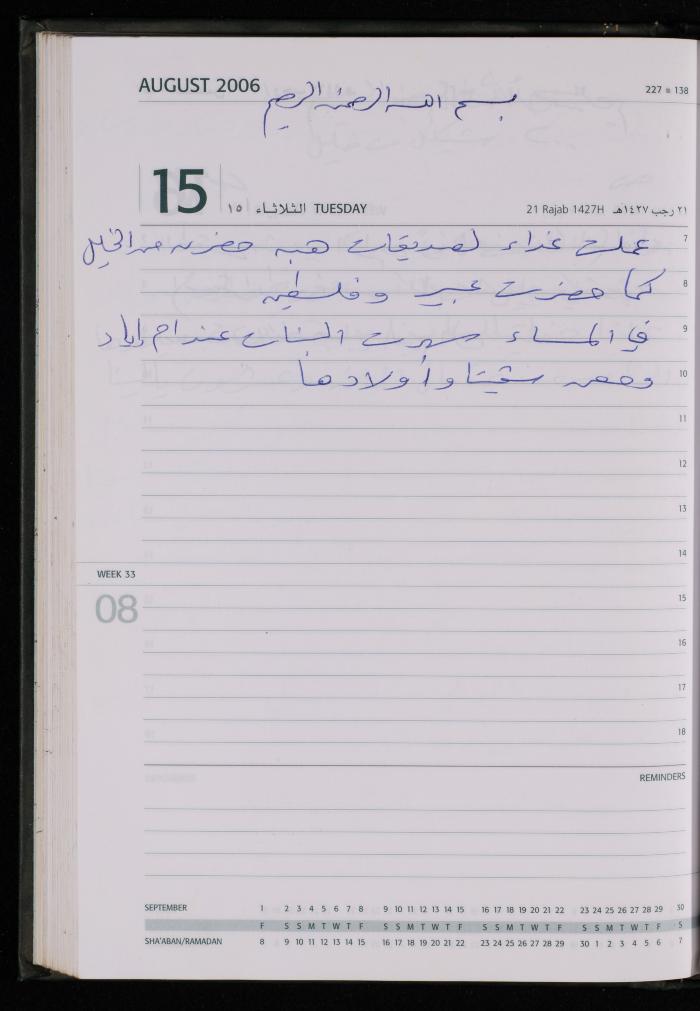 AUGUST 2006
بسم الله الرحمن الرحيم
227 138
15
الثلاثاء ١٥ TUESDAY
21 Rajab 1427H ٢١ رجب ١٤٢٧هـ
7 عملت غداء لصديقات هبه حضرن من الخليل
8 كما حضرت عبير وفلسطين
9 في المساء سهرت البنات عند ام اياد
10 وحضرن وأولادها
11
12
13
14
WEEK 33
08
15
16
17
18
REMINDERS
SEPTEMBER 1 2 3 4 5 6 7 8 9 10 11 12 13 14 15 16 17 18 19 20 21 22 23 24 25 26 27 28 29 30
F S S M T W T F S S M T W T F S S M T W T F S S M T W T F S
SHA'ABAN/RAMADAN 8 9 10 11 12 13 14 15 16 17 18 19 20 21 22 23 24 25 26 27 28 29 30 1 2 3 4 5 6 7